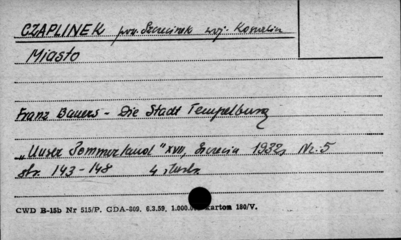 CZAPLINEK pow. Szczecinek woj. Koszalin
Miasto
Franz Bauers - Die Stadt Tempelburg
„Unser Pommerland" XVII, Szczecin 1932, Nr. 5
str. 143-148 4 ilustr.
CWD B-15b Nr 515/P. GDA-809, 6.3.59, 1.000.0 karton 180/V.